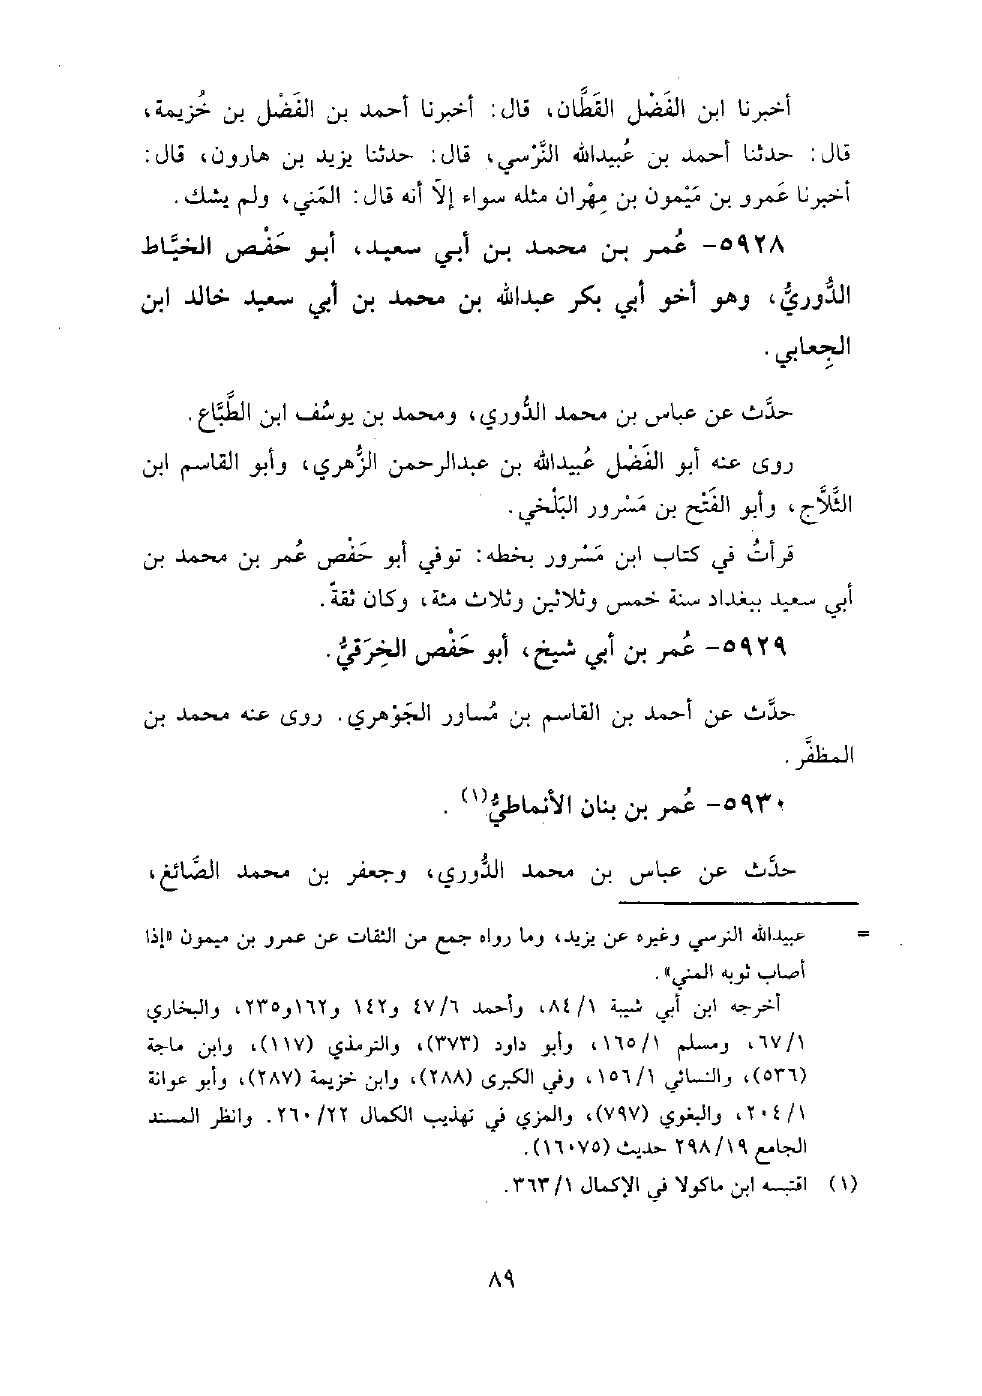 أخبرنا ابن الفَضْل القَطَّان، قال: أخبرنا أحمد بن الفَضْل بن خُزيمة،
قال: حدثنا أحمد بن عُبيدالله النَّرْسي، قال: حدثنا يزيد بن هارون، قال:
أخبرنا عَمرو بن مَيْمون بن مِهْران مثله سواء إلاّ أنه قال: المَني، ولم يشك.
٥٩٢٨- عُمر بن محمد بن أبي سعيد، أبو حَفْص الخيَّاط
الدُّوريُّ، وهو أخو أبي بكر عبدالله بن محمد بن أبي سعيد خالد ابن
الجِعابي.
حدَّث عن عباس بن محمد الدُّوري، ومحمد بن يوسُف ابن الطَّبَّاع.
روى عنه أبو الفَضْل عُبيدالله بن عبدالرحمن الزُّهري، وأبو القاسم ابن
الثَّلاَّج، وأبو الفَتْح بن مَسْرور البَلْخي.
قرأتُ في كتاب ابن مَسْرور بخطه: توفي أبو حَفْص عُمر بن محمد بن
أبي سعيد ببغداد سنة خمس وثلاثين وثلاث مئة، وكان ثقةً.
٥٩٢٩- عُمر بن أبي شيخ، أبو حَفْص الخِرَقيُّ.
حدَّث عن أحمد بن القاسم بن مُساور الجَوْهري. روى عنه محمد بن
المظفَّر.
٥٩٣٠- عُمر بن بنان الأنماطيُّ(١).
حدَّث عن عباس بن محمد الدُّوري، وجعفر بن محمد الصَّائغ،
= عبيدالله النرسي وغيره عن يزيد، وما رواه جمع من الثقات عن عمرو بن ميمون «إذا
أصاب ثوبه المني».
أخرجه ابن أبي شيبة ١/ ٨٤، وأحمد ٦/ ٤٧ و١٤٢ و١٦٢ و٢٣٥، والبخاري
١/ ٦٧، ومسلم ١/ ١٦٥، وأبو داود (٣٧٣)، والترمذي (١١٧)، وابن ماجة
(٥٣٦)، والنسائي ١/ ١٥٦، وفي الكبرى (٢٨٨)، وابن خزيمة (٢٨٧)، وأبو عوانة
١/ ٢٠٤، والبغوي (٧٩٧)، والمزي في تهذيب الكمال ٢٢/ ٢٦٠. وانظر المسند
الجامع ١٩/ ٢٩٨ حديث (١٦٠٧٥).
(١) اقتبسه ابن ماكولا في الإكمال ١/ ٣٦٣.
٨٩